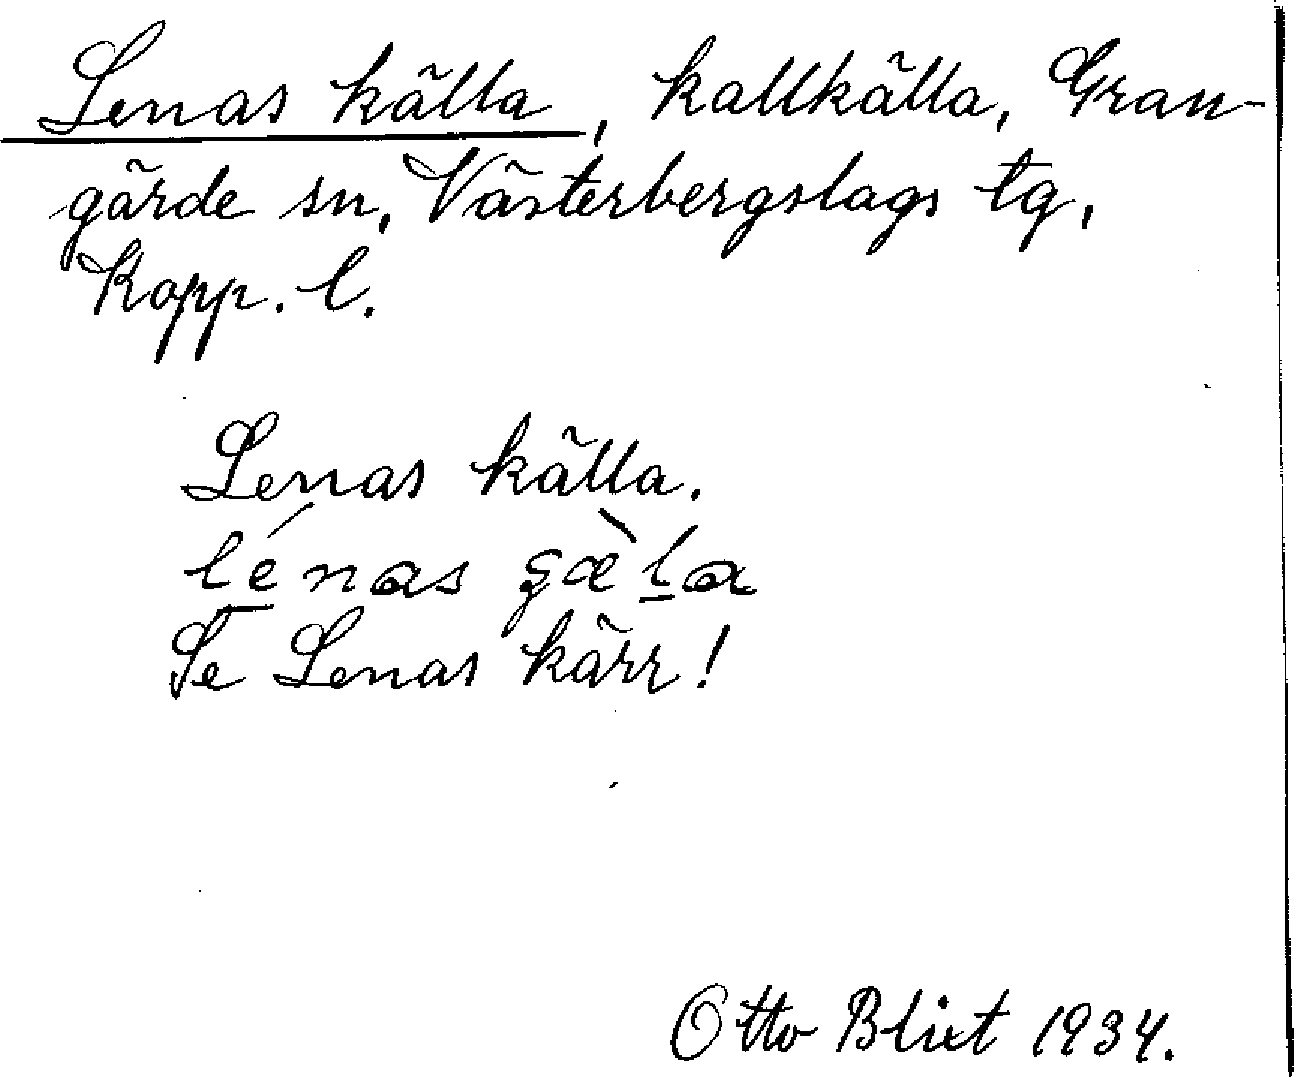 Lenas källa, kallkälla, Gran-
gärde sn, Västerbergslags tg,
Kopp. l.
Lenas källa.
lénas gæ̀la
Se Lenas kärr!
Otto Blixt 1934.